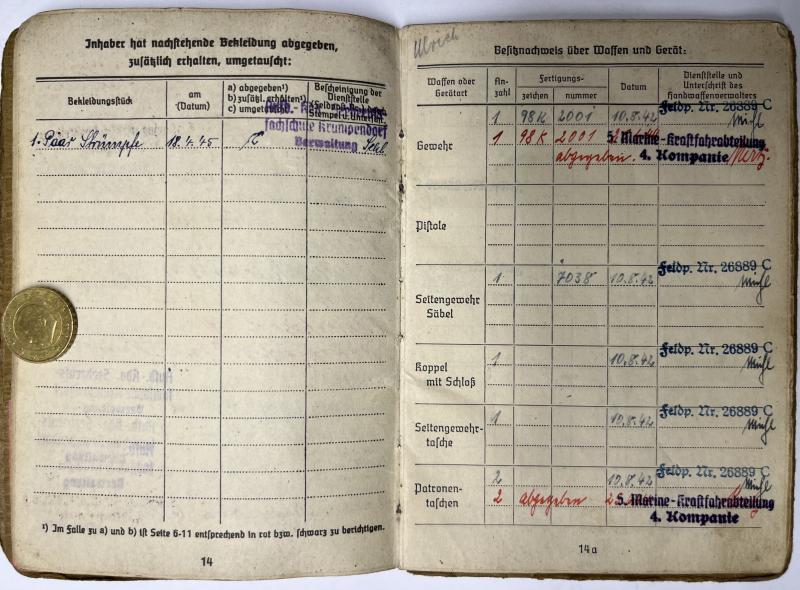 Inhaber hat nachstehende Bekleidung abgegeben,
zusätzlich erhalten, umgetauscht:
Bekleidungsstück
am
(Datum)
a) abgegeben¹)
b) zusätzl. erhalten¹)
c) umgetauscht
Bescheinigung der
Dienststelle
fachschule Krumpendorf
Verwaltung
1. Paar Strümpfe 18.4.45 c
¹) Im Falle zu a) und b) ist Seite 6-11 entsprechend in rot bzw. schwarz zu berichtigen.
14
Ulrich
Besitznachweis über Waffen und Gerät:
Waffen oder
Gerätart
An-
zahl
Fertigungs-
zeichen
nummer
Datum
Dienststelle und
Unterschrift des
Handwaffenverwalters
1 98K 2001 10.8.42 Feldp. Nr. 26889 C
Gewehr 1 98K 2001 5. Marine-Kraftfahrabteilung
abgegeben. 4. Kompanie
Pistole
Seitengewehr
Säbel
1 7038 10.8.42 Feldp. Nr. 26889 C
Koppel
mit Schloß
1 10.8.42 Feldp. Nr. 26889 C
Seitengewehr-
tasche
1 10.8.42 Feldp. Nr. 26889 C
Patronen-
taschen
2 10.8.42 Feldp. Nr. 26889 C
2 abgegeben 5. Marine-Kraftfahrabteilung
4. Kompanie
14a